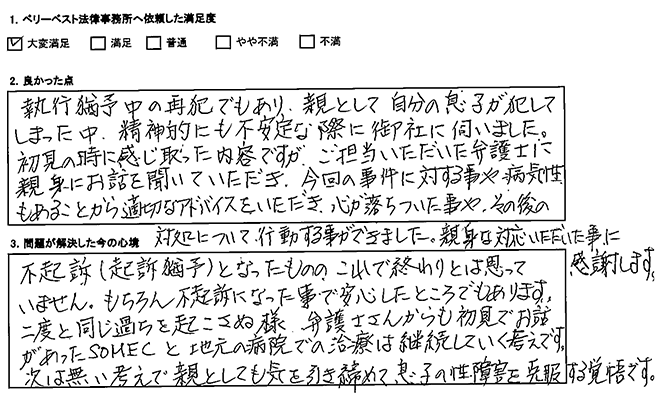 1. ベリーベスト法律事務所へ依頼した満足度
大変満足 満足 普通 やや不満 不満
2. 良かった点
執行猶予中の再犯でもあり、親として自分の息子が犯して
しまった中、精神的にも不安定な際に御社に伺いました。
初見の時に感じ取った内容ですが、ご担当いただいた弁護士に
親身にお話を聞いていただき、今回の事件に対する事や、病気性
もあることから適切なアドバイスをいただき、心が落ちついた事や、その後の
対処について、行動する事ができました。親身な対応いただいた事に
感謝します。
3. 問題が解決した今の心境
不起訴(起訴猶予)となったものの、これで終わりとは思って
いません。もちろん不起訴になった事で安心したところでもあります。
二度と同じ過ちを起こさぬ様、弁護士さんからも初見でお話
があったSOMECと地元の病院での治療は継続していく考えです。
次は無い考えで親としても気を引き締めて、息子の性障害を克服する覚悟です。